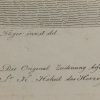 Kläger invent. del.
Die Original Zeichnung bef
Sr. K. Hoheit des Herzo